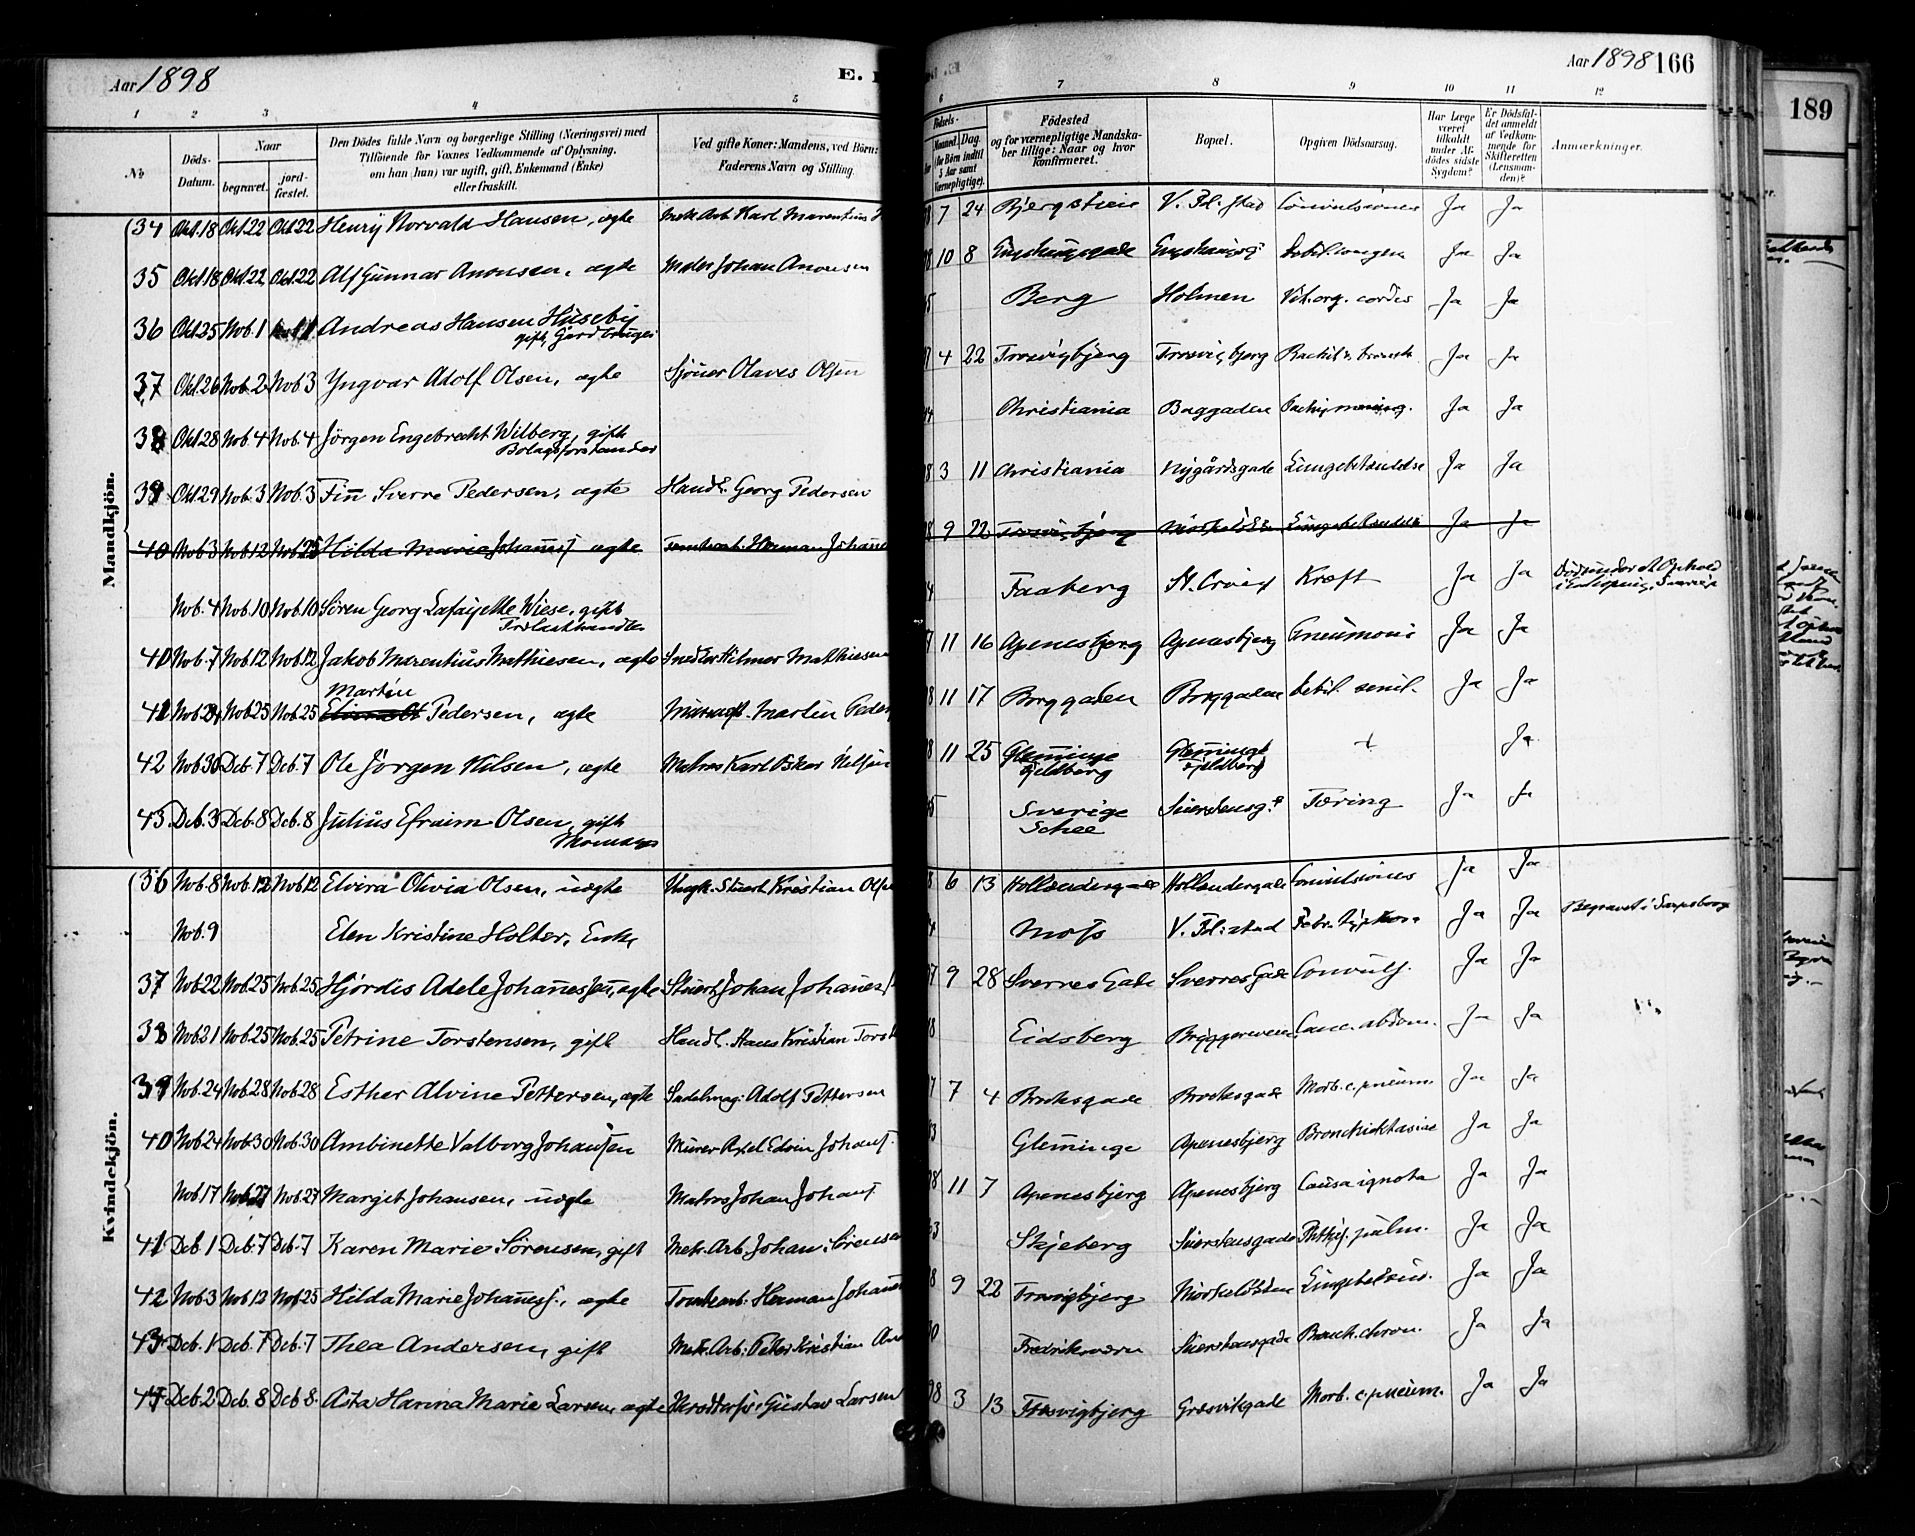 Aar 1898
E.
Aar 1898 166
189
1 2 3 4 5 6 7 8 9 10 11 12
No
Döds-Datum.
Naar
begravet. jordfæstet.
Den Dödes fulde Navn og borgerlige Stilling (Næringsvei) med
Tilföiende for Voxnes Vedkommende af Oplysning,
om han (hun) var ugift, gift, Enkemand (Enke)
eller fraskilt.
Ved gifte Koner: Mandens, ved Börn:
Faderens Navn og Stilling.
Födsels-
Maaned. Dag.
(for Börn indtil
5 Aar samt
Værnepligtige).
Födested
og for værnepligtige Mandska-
ber tillige: Naar og hvor
konfirmeret.
Bopæl.
Opgiven Dödsaarsag.
Har Læge
været
tilkaldt
under Af-
dödes sidste
Sygdom?
Er Dödsfal-
det anmeldt
af Vedkom-
mende for
Skifteretten
(Lensman-
den)?
Anmærkninger.
Mandkjön.
34 Okt.18 Okt.22 Okt.22 Henry Norvald Hansen, ægte Mek. Arb. Karl Marentius 7 24 Bjergstien V. Fd.stad Convulsiones Ja Ja
35 Okt.18 Okt.22 Okt.22 Alf Gunnar Aronsen, ægte Maler Johan Aronsen 10 8 Ja Ja
36 Okt.25 Nob.1 Andreas Hansen Huseby
gift, Gårdbruger Berg Holmen Vit. org. cordis Ja Ja
37 Okt.26 Nob.2 Nob.3 Yngvar Adolf Olsen, ægte Sjöuer Olaves Olsen 4 22 Trosvigbjerg Trosvigbjerg Rachit. Ja Ja
38 Okt.28 Nob.4 Nob.4 Jörgen Engebrecht Wilberg, gift
Bolagsforstander Christiania Baggaden Ja Ja
39 Okt.29 Nob.3 Nob.3 Finn Sverre Pedersen, ægte Handl. Georg Pedersen 3 11 Christiania Nygårdsgade Lungebetændelse Ja Ja
40 Nob.3 Nob.12 Nob.25 Hilda Marie Johanesf ægte Tomtearb. Herman Johanes 9 22 Trosvigbjerg Lungebetændelse Ja Ja
Nob.4 Nob.10 Nob.10 Sören Georg Lafayette Wiese, gift
Trælasthandler Faaberg St. Croix Kræft Ja Ja Död under et Ophold
i Enköping, Sverige
40 Nob.7 Nob.12 Nob.12 Jakob Marentius Mathiesen, ægte Snedker Hilmar Mathiesen 11 16 Apenesbjerg Apenesbjerg Pneumoni Ja Ja
41 Nob.25 Nob.25 Martin
Pedersen, ægte Martin Peders 11 17 Borggaden Borggaden Debil. senil. Ja Ja
42 Nob.30 Deb.7 Deb.7 Ole Jörgen Nilsen, ægte Matros Karl Oskar Nilsen 11 25 Glemminge
Fjeldberg Glemminge
Fjeldberg + Ja
43 Deb.3 Deb.8 Deb.8 Julius Efraim Olsen, gift
Sverige
Schee Tæring Ja Ja
Kvindekjön.
36 Nob.8 Nob.12 Nob.12 Elvira Olivia Olsen, uægte Ungk. Stuert Kristian Olsen 6 13 Hollendergade Hollendergade Convulsiones Ja Ja
Nob.9 Elen Kristine Holter, Enke Moss V. Fd:stad Ja Ja Begravet i Sarpsborg
37 Nob.22 Nob.25 Nob.25 Hjördis Adele Johanessen, ægte Stuert Johan Johanes 9 28 Sverres Gade Sverres Gade Convuls. Ja Ja
38 Nob.21 Nob.25 Nob.25 Petrine Torstensen, gift Handl. Hans Kristian Torst Eidsberg Canc. abdom. Ja Ja
39 Nob.24 Nob.28 Nob.28 Esther Alvine Pettersen, ægte Sadelmag. Adolf Pettersen 7 4 Brocksgade Brocksgade Morb. c. pneum. Ja Ja
40 Nob.24 Nob.30 Nob.30 Ambinette Valborg Johansen Murer Axel Edvin Johans. Glemminge Apenesbjerg Bronchiektasiae Ja Ja
Nob.17 Nob.27 Nob.27 Marget Johansen, uægte Matros Johan Johans 11 7 Apenesbjerg Apenesbjerg Causa ignota Ja Ja
41 Deb.1 Deb.7 Deb.7 Karen Marie Sörensen, gift Mek. Arb. Johan Sörensen Skjeberg Phthis. pulm. Ja Ja
42 Nob.3 Nob.12 Nob.25 Hilda Marie Johanesf., ægte Tomtearb. Herman Johanes 9 22 Trosvigbjerg Lungebetænd. Ja Ja
43 Deb.1 Deb.7 Deb.7 Thea Andersen, gift Mek. Arb. Peter Kristian And Fredriksværn Bronch. chron. Ja Ja
44 Deb.2 Deb.8 Deb.8 Asta Hanna Marie Larsen, ægte Gustav Larsen 98 3 13 Trosvigbjerg Græsvikgade Morb. c. pneum. Ja Ja